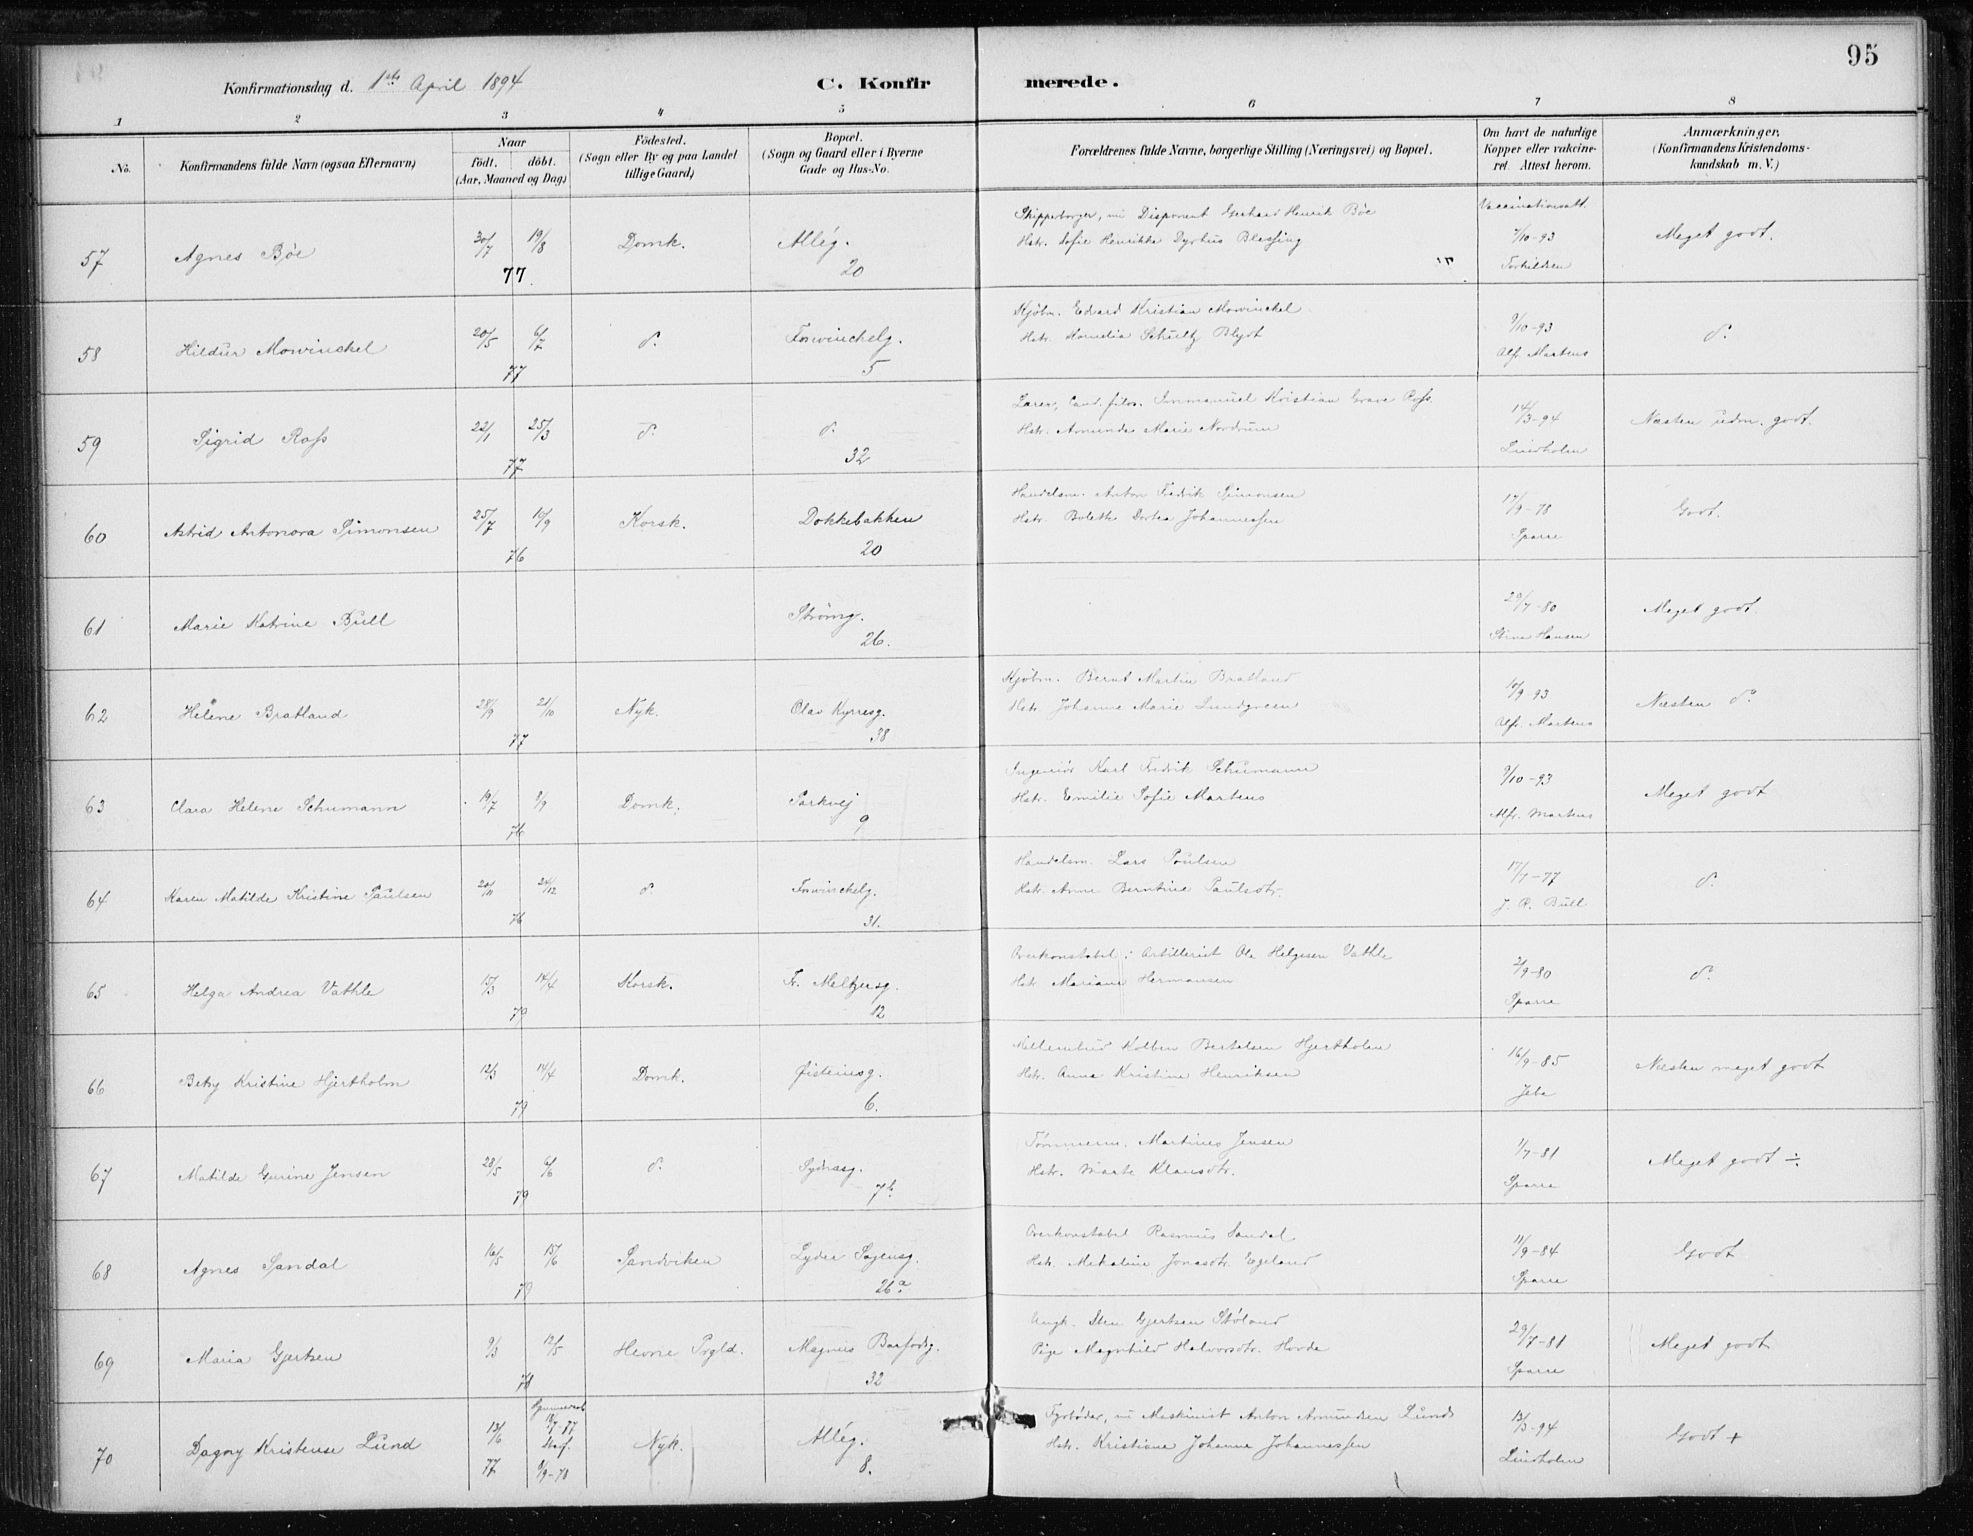 95
Konfirmationsdag d. 1ste April 1894 C. Konfirmerede.
1 2 3 4 5 6 7 8
No. Konfirmandens fulde Navn (ogsaa Efternavn) Naar födt. döbt. (Aar, Maaned og Dag) Födested. (Sogn eller By og paa Landet tillige Gaard) Bopæl. (Sogn og Gaard eller i Byerne Gade og Hus-No. Forældrenes fulde Navne, borgerlige Stilling (Næringsvei) og Bopæl. Om havt de naturlige Kopper eller vakcineret. Attest herom. Anmærkninger. (Konfirmandens Kristendomskundskab m. V.)
Skipperborger, nu Disponent Gerhard Henrik Böe Vaccinationsatt.
57 Agnes Böe 30/7 19/8 Domk. Allég. Hstr. Sofie Henrikke Dyrhus Blessing 7/10-93 Meget godt.
77 20 Torkildsen
Kjöbm. Edvard Kristian Mowinckel
58 Hildur Mowinckel 20/5 6/7 d. Foswinckelg. Hstr. Kornelia Schultz Blydt 9/10-93 d.
77 5 Alfr. Martens
Lærer, Cand. filos. Immanuel Kristian Grave Ross
59 Sigrid Ross 22/1 25/3 d. d. Hstr. Amunda Marie Nordrum 14/3-94 Næsten udm. godt.
77 32 Lindholm
Handelsm. Anton Fredrik Simonsen
60 Astrid Antonora Simonsen 25/7 10/9 Korsk. Dokkebakken Hstr. Bolette Dortea Johannessen 17/9-78 Godt.
76 20 Sparre
61 Marie Katrine Bull Strömg. 29/7-80 Meget godt.
26. Stine Hansen
Kjöbm. Bernt Martin Bratland
62 Helene Bratland 28/9 21/10 Nyk. Olav Kyrresg. Hstr. Johanne Marie Lundgreen 10/9-93 Næsten do
77 38 Alfr. Martens
Ingeniör Karl Fredrik Schumann
63 Clara Helene Schumann 19/7 3/9 Domk. Parkvej Hstr. Emilie Sofie Martens 9/10-93 Meget godt
76 9 Alfr. Martens
Handelsm. Lars Poulsen
64 Karen Matilde Kristine Paulsen 20/11 24/12 d. Foswinckelg. Hstr. Anne Berntine Paulsdtr. 17/7-77 d.
76 31. J. R. Bull
Overkonstabel i Artilleriet Ole Helgesen Vathle
65 Helga Andrea Vathle 15/3 14/4 Korsk. Fr. Meltzersg. Hstr. Mariane Hermansen 2/9-80 d.
79 12 Sparre
Mellembud Kolben Bertelsen Hjertholm
66 Betsy Kristine Hjertholm 12/3 14/4 Domk. Øisteinsg. Hstr. Anna Kristine Henriksen 16/9-85 Næsten meget godt
79 6. Jebe
Tömmerm. Martines Jensen
67 Matilde Gurine Jensen 28/5 6/6 d. Sydnesg. Hstr. Marte Klausdtr. 1/7-81 Meget godt ÷
79 7b Sparre
Overkonstabel Rasmus Sandal
68 Agnes Sandal 16/5 15/6 Sandviken Lyder Sagensg. Hstr. Mekaline Jonasdtr. Egeland 11/9-84 Godt
79 26a Sparre
Ungk. Sten Gjertsen Stöland
69 Maria Gjertsen 9/3 12/5 Hevne Prgld. Magnus Barfodsg. Pige Magnhild Halvorsdtr. Hovda 29/7-81 Meget godt
78 32 Sparre
Fyrböder, nu Maskinist Anton Amundsen Lund
70 Dagny Kristense Lund 13/6 77 Hjemmedöbt 18/7-77 Stadf. 8/9-78 Nyk. Allég. 8. Hstr. Kristiane Johanne Johannessen 13/3-94 Lindholm Godt +